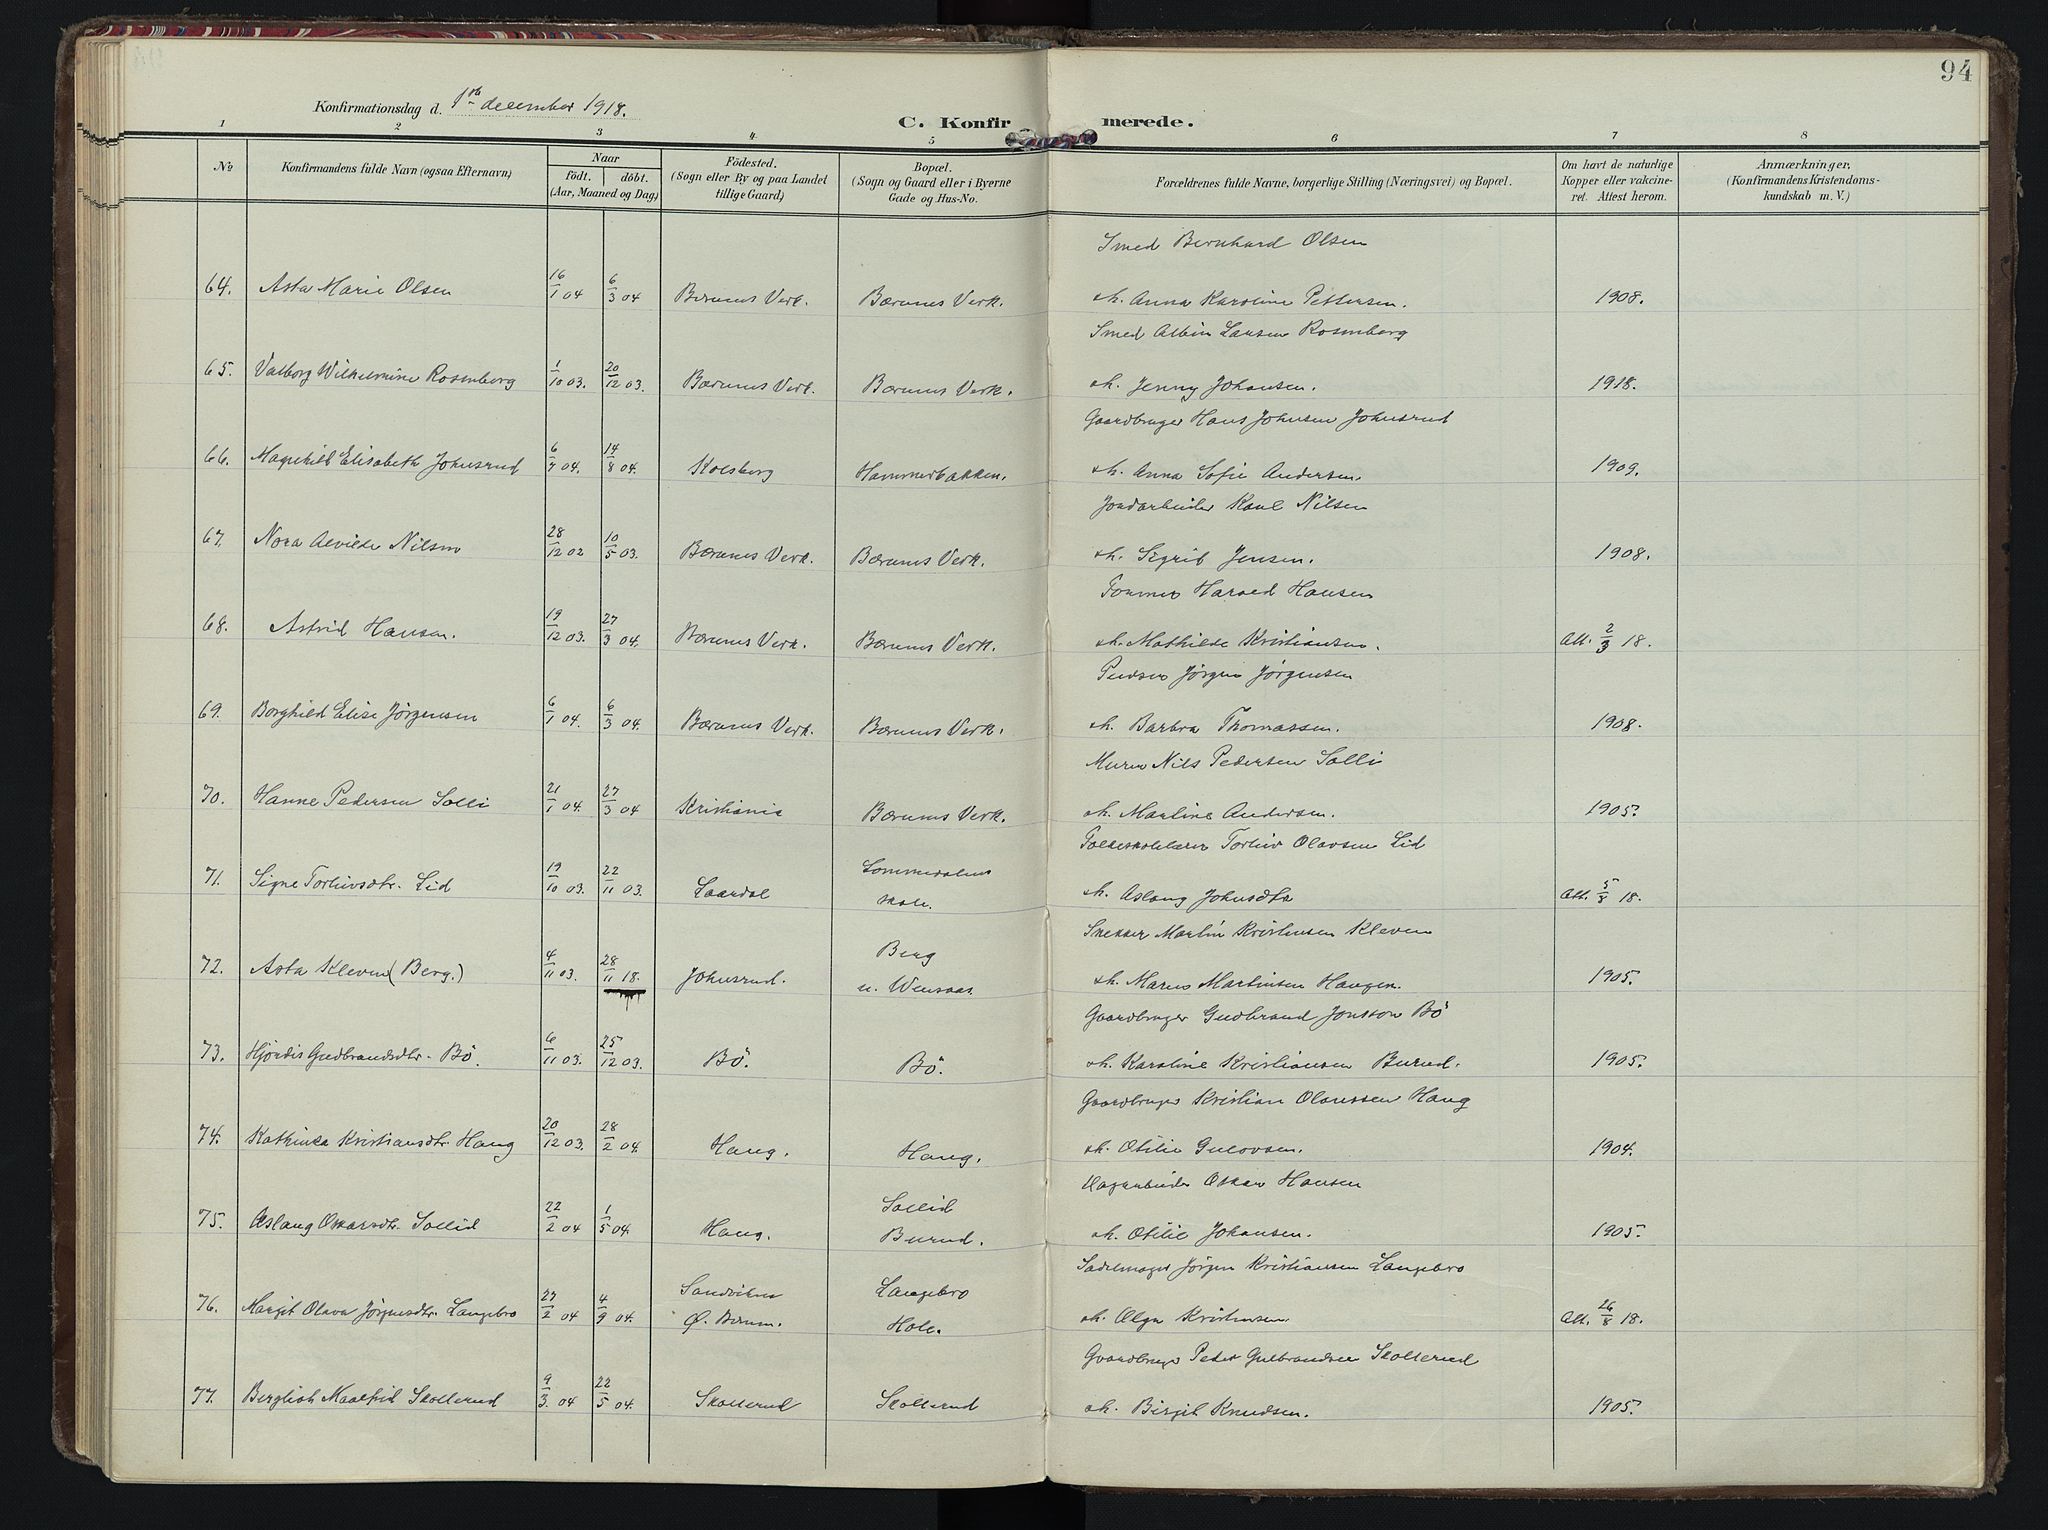 94
Konfirmationsdag d. 1ste december 1918.
C. Konfirmerede.
1 2 3 4 5 6 7 8
No
Konfirmandens fulde Navn (ogsaa Efternavn)
Naar
födt. döbt.
(Aar, Maaned og Dag)
Födested.
(Sogn eller By og paa Landet
tillige Gaard)
Bopæl.
(Sogn og Gaard eller i Byerne
Gade og Hus-No.
Forældrenes fulde Navne, borgerlige Stilling (Næringsvei) og Bopæl.
Om havt de naturlige
Kopper eller vakcine-
ret. Attest herom.
Anmærkninger.
(Konfirmandens Kristendoms-
kundskab m. V.)
Smed Bernhard Olsen
64. Asta Marie Olsen 16/1 04 6/3 04 Bærums Verk. Bærums Verk. oh. Anna Karoline Pettersen. 1908.
Smed Albin Larsen Rosenberg
65. Valborg Wilhelmine Rosenberg 1/10 03. 20/12 03. Bærums Verk. Bærums Verk. oh. Jenny Johansen. 1918.
Gaardbruger Hans Johnsen Johnsrud
66. Magnhild Elisabeth Johnsrud 6/7 04. 14/8 04. Kolsberg Hammerbakken. oh. Anna Sofie Andersen. 1909.
Jordarbeider Karl Nilsen
67. Nora Alvilde Nilsen 28/12 02 10/5 03. Bærums Verk. Bærums Verk. oh. Sigrid Jensen. 1908.
Former Harald Hansen
68. Astrid Hansen. 19/12 03. 27/3 04. Bærums Verk. Bærums Verk. oh. Mathilde Kristiansen. Att. 2/3 18.
Pudser Jørgen Jørgensen
69. Borghild Elise Jørgensen 6/1 04. 6/3 04. Bærums Verk. Bærums Verk. oh. Barbra Thomassen. 1908.
Murer Nils Pedersen Solli
70. Hanne Pedersen Solli 21/1 04. 27/3 04 Kristiania Bærums Verk. oh. Martine Andersen. 1905.
Folkeskolelærer Torleiv Olavsen Lid
71. Signe Torleivsdtr. Lid 19/10 03. 22/11 03. Laardal Lommedalens
skole. oh. Aslaug Johnsdtr Att. 5/8 18.
Snekker Martin Kristensen Kleven
72. Asta Kleven (Berg.) 4/11 03. 28/11 18. Johnsrud. Berg
u. Wensaas. oh. Maren Martinsen Haugen. 1905.
Gaardbruger Gudbrand Jonsson Bö
73. Hjördis Gudbrandsdtr. Bö. 6/11 03. 25/12 03. Bö. Bö. oh. Karoline Kristiansen Burud. 1905.
Gaardbruger Kristian Olaussen Haug
74. Kathinka Kristiansdtr. Haug 20/12 03. 28/2 04. Haug. Haug. oh. Otilie Gulovsen. 1904.
Oskar Hansen
75. Aslaug Oskarsdtr. Sollid 22/2 04 1/5 04. Haug. Sollid
Burud. oh. Otilie Johansen. 1905.
Sadelmager Jørgen Kristiansen Langebro
76. Margit Olava Jørgensdtr. Langebro 27/2 04 4/9 04. Sandviken
Ø. Bærum. Langebro
Hole. oh. Olga Kristensen. Att. 26/8 18.
Gaardbruger Peder Gulbrandsen Skollerud
77. Bergliot Maalfrid Skollerud 9/3. 04 22/5 04. Skollerud Skollerud oh. Birgit Knudsen. 1905.